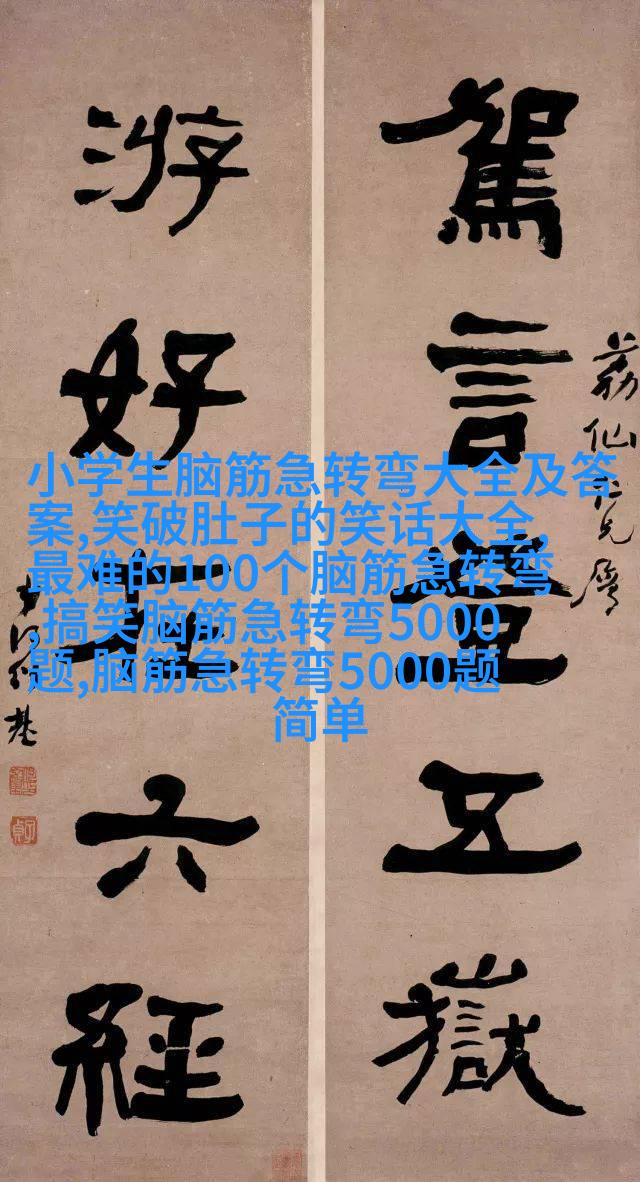 駕言登五嶽
荔仙仁兄屬
游好在六經
何紹基
小学生脑筋急转弯大全及答
案,笑破肚子的笑话大全,
最难的100个脑筋急转弯
,搞笑脑筋急转弯5000
题,脑筋急转弯5000题
简单